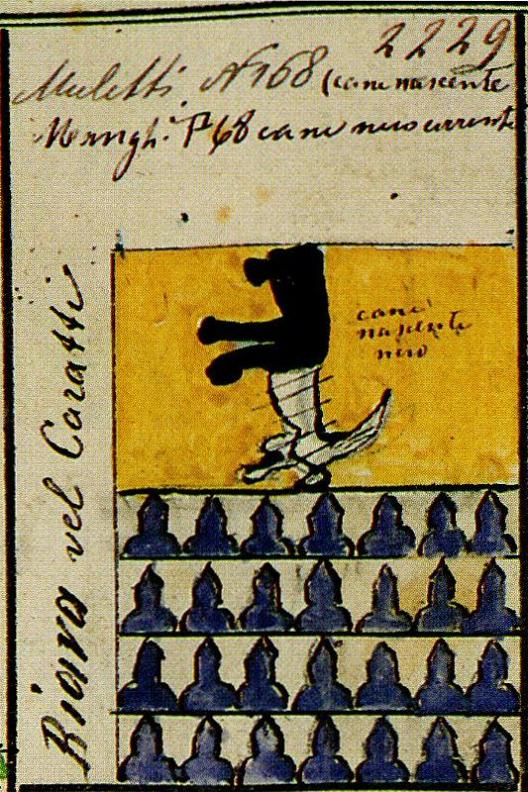 2229
Muletti N 168 (cane nascente
Menegh.i P 68 cane nero corrente
cane
nascente
nero
Biava vel Caratti